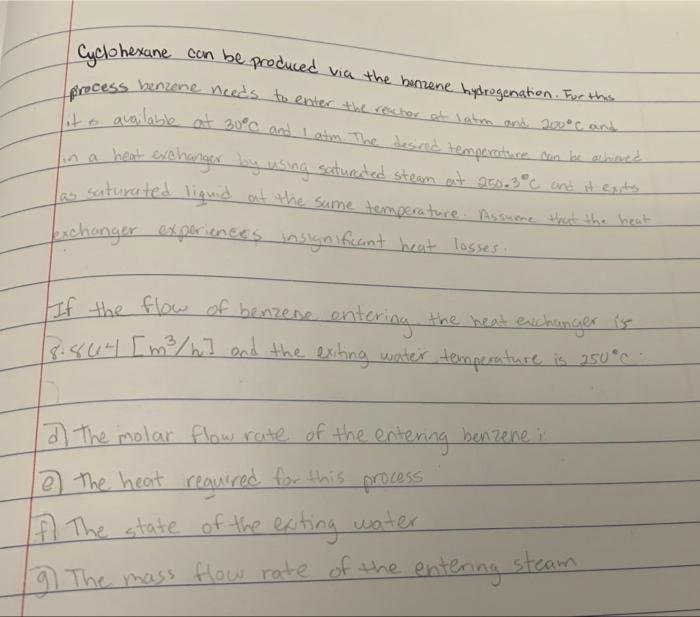 Cyclohexane can be produced via the benzene hydrogenation. For this
process benzene needs to enter the reactor at 1 atm and 200°C and
it is available at 30°C and 1 atm. The desired temperature can be achieved
in a heat exchanger by using saturated steam at 250.3°C and it exits
as saturated liquid at the same temperature. Assume that the heat
exchanger experiences insignificant heat losses.
If the flow of benzene entering the heat exchanger is
[m³/h] and the exiting water temperature is 250°C.
d) The molar flow rate of the entering benzene
e) the heat required for this process
f) The state of the exiting water
g) The mass flow rate of the entering steam